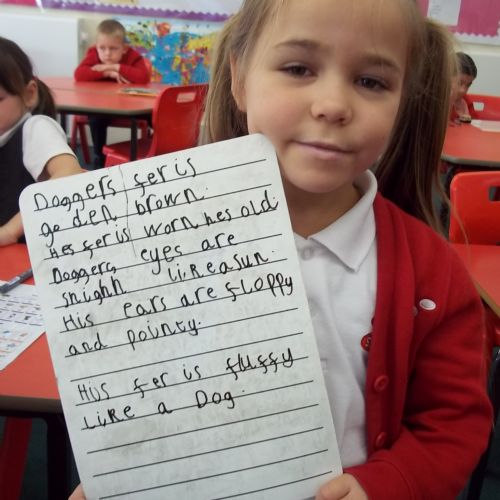 Doggers fer is
goden brown.
Hes fer is worn hes old.
Doggers eyes are
shighn like a sun.
His ears are floppy
and pointy.
His fer is fluffy
Like a Dog.